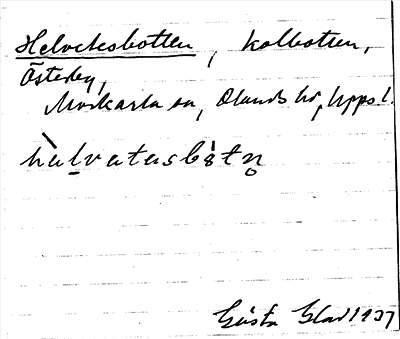 Helvetesbotten, kolbotten,
Österby,
Morkarla sn, Olands hd, Upps. l.
hälvatasbåtn̥
Gösta Glad 1937